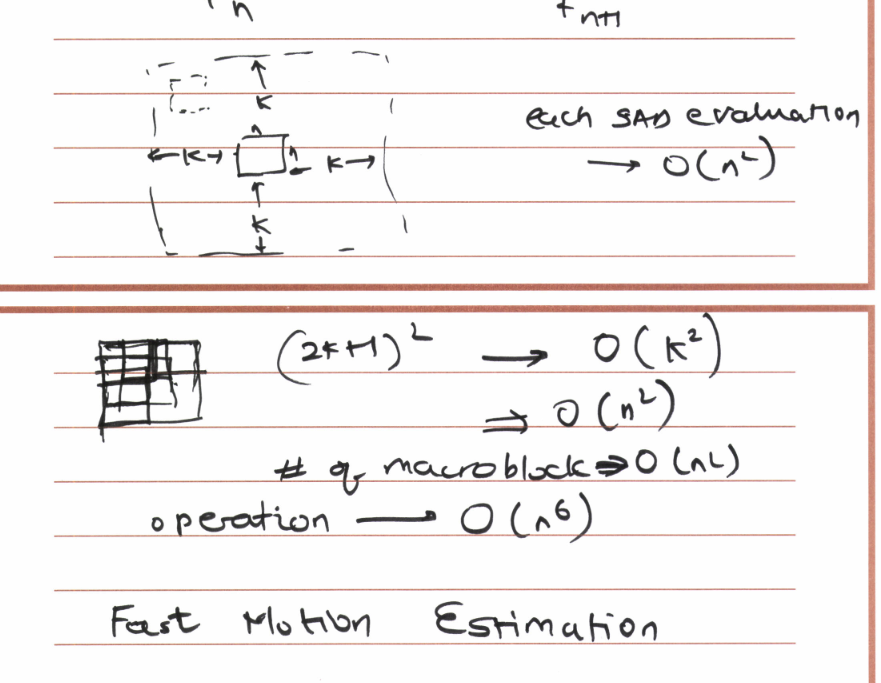 n
n+1
K
each SAD evaluation
n
K n K → O(n²)
K
(2K+1)² → O(K²)
⇒ O(n²)
# of macroblock ⇒ O(n²)
operation → O(n⁶)
Fast Motion Estimation